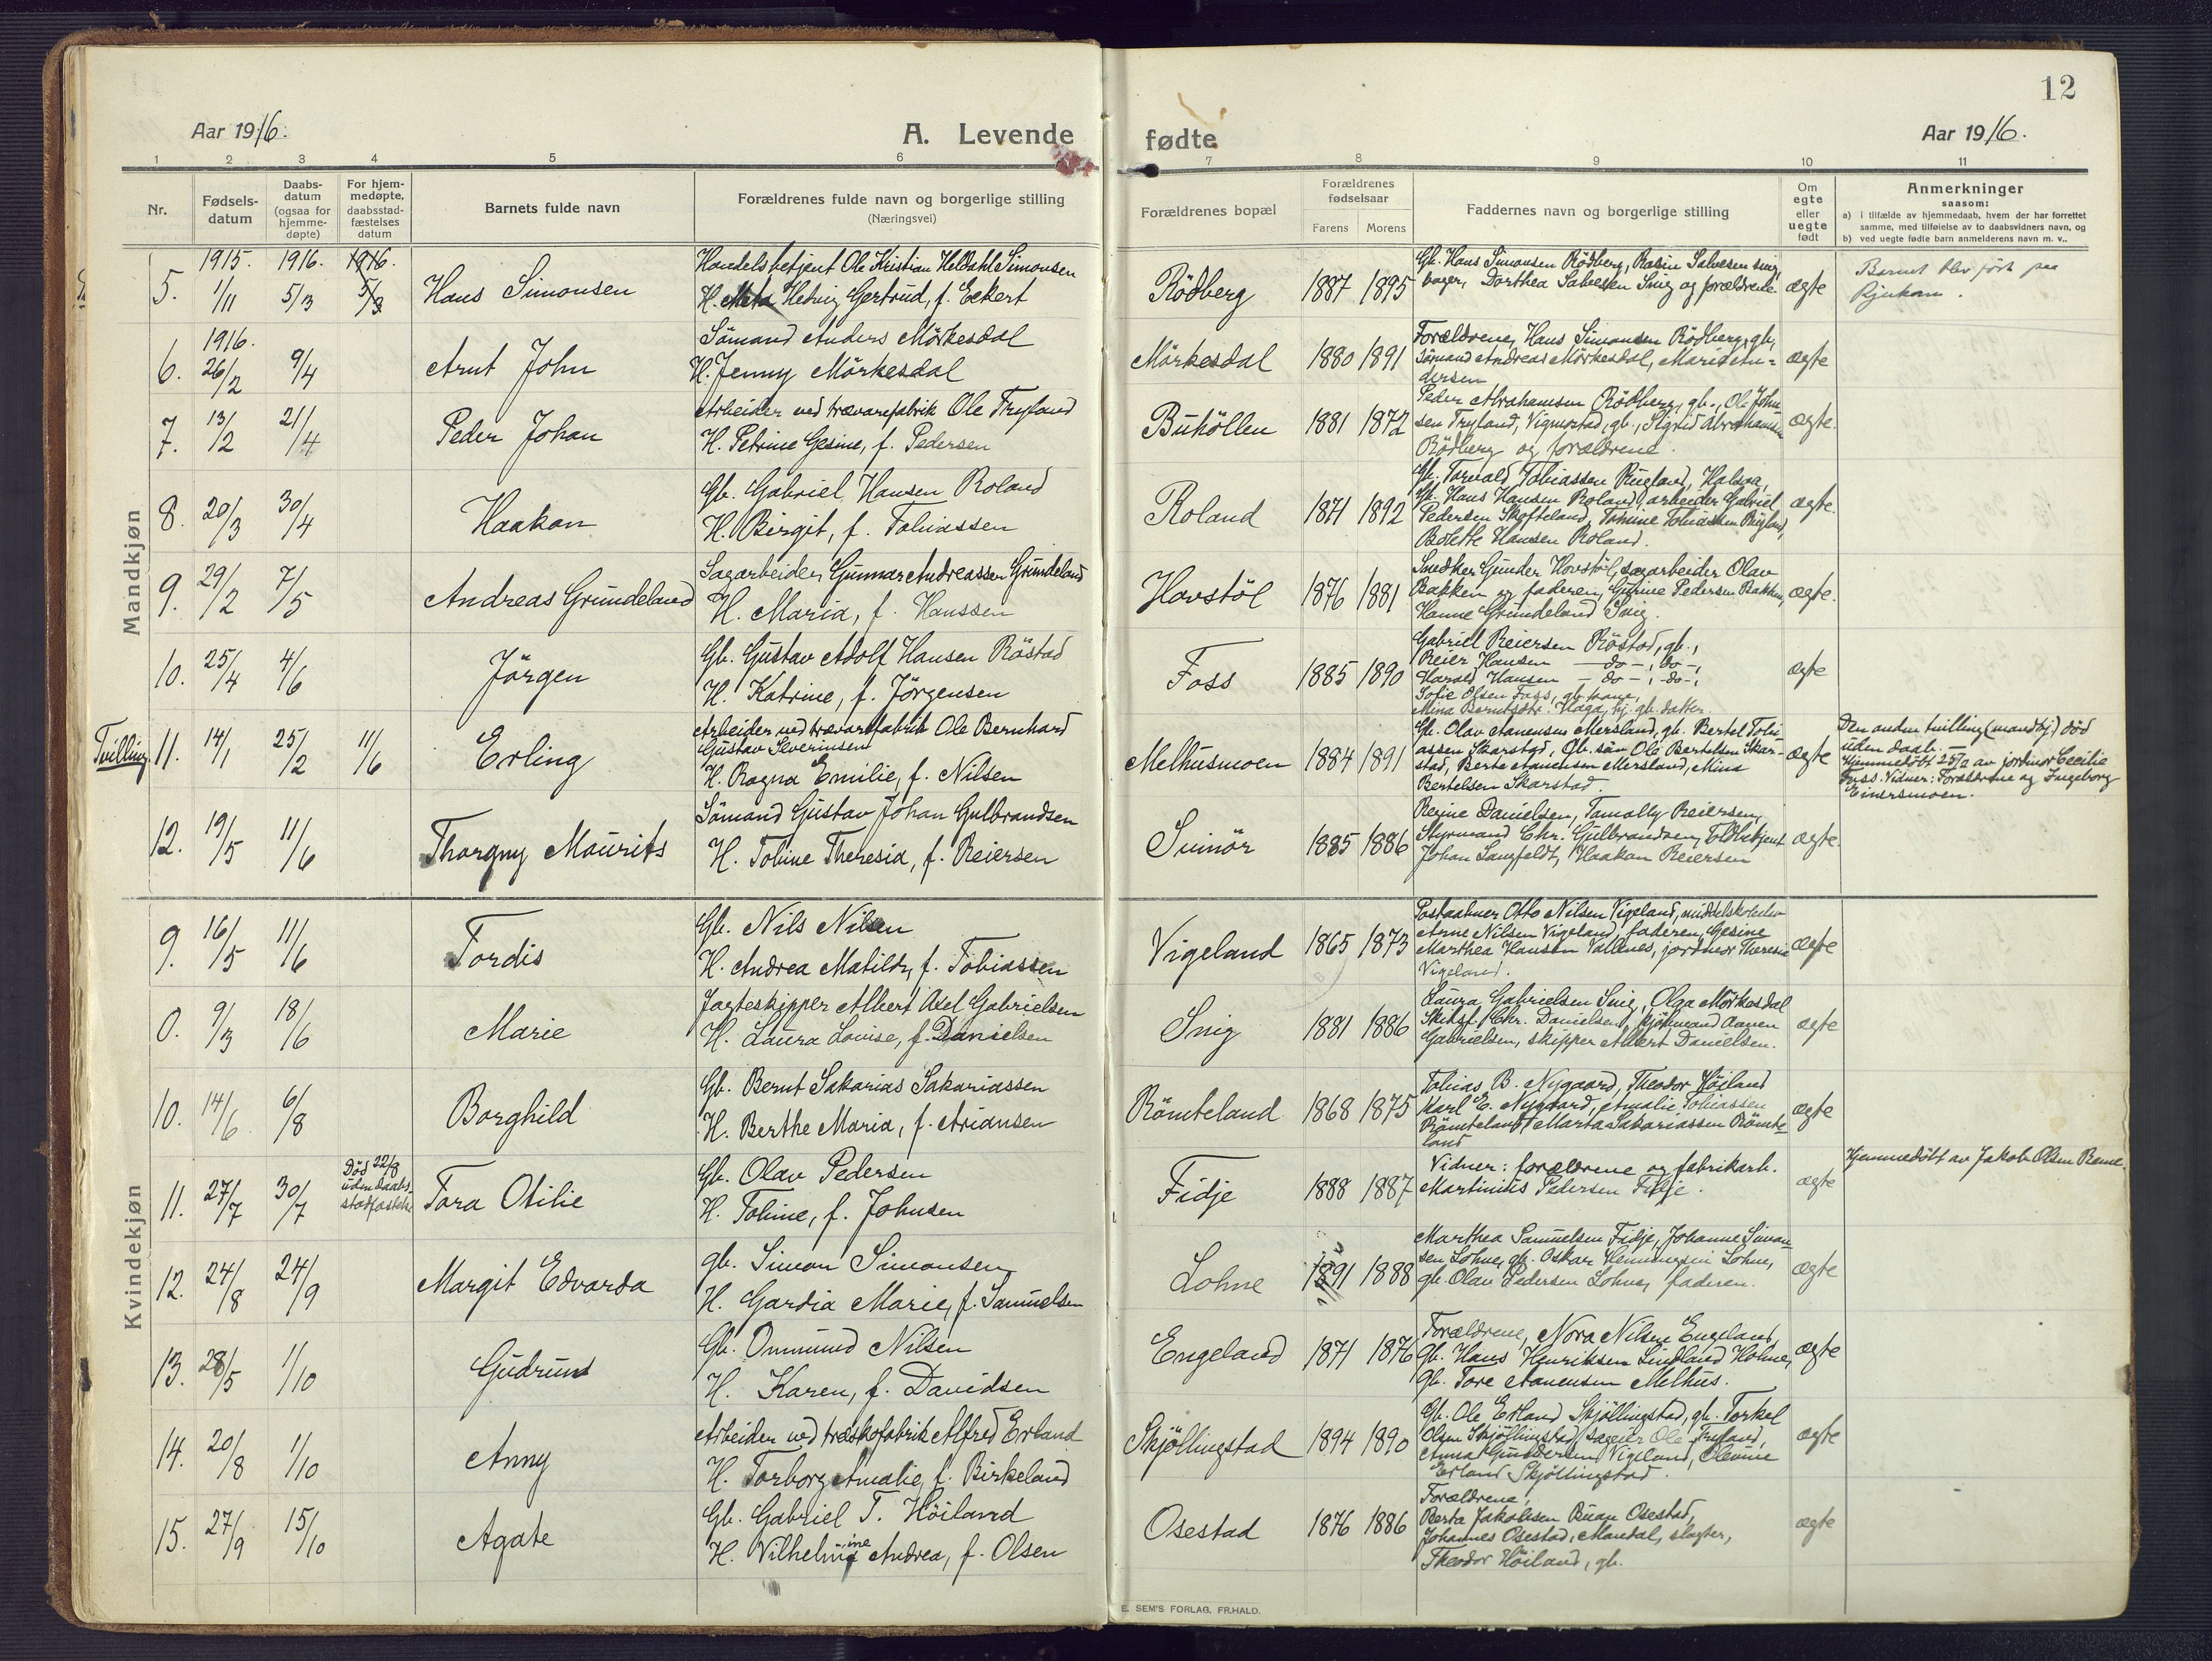 12
Aar 1916.
A. Levende
fødte
Aar 1916.
1 2 3 4 5 6 7 8 9 10 11
Nr.
Fødsels-
datum
Daabs-
datum
(ogsaa for
hjemme-
døpte)
For hjem-
medøpte,
daabsstad-
fæstelses
datum
Barnets fulde navn
Forældrenes fulde navn og borgerlige stilling
(Næringsvei)
Forældrenes bopæl
Forældrenes
fødselsaar
Farens Morens
Faddernes navn og borgerlige stilling
Om
egte
eller
uegte
født
Anmerkninger
saasom:
a) i tilfælde av hjemmedaab, hvem der har forrettet
samme, med tilføielse av to daabsvidners navn, og
b) ved uegte fødte barn anmelderens navn m. v..
Mandkjøn
1915. 1916. 1916.
5. 1/11 5/3 5/3 Hans Simonsen
Handelsbetjent Ole Kristian Heldahl Simonsen
H. Meta Hedvig Gertrud, f. Eckert
Rödberg 1887 1895
Gb. Hans Simonsen Rödberg, Rasin Salvesen Snig,
Dorthea Salvesen Snig og forældrene
ægte
Barnet blev født paa
Rjukan.
1916.
6. 26/2 9/4 Arnt John
Sömand Anders Mörkesdal
H. Jenny Mörkesdal
Mörkesdal 1880 1891
Forældrene, Hans Simonsen Rödberg, gb,
Sömand Andreas Mörkesdal, Marie An-
dersen
ægte
7. 13/2 21/4 Peder Johan
Arbeider ved trævarefabrik Ole Tryland
H. Petrine Gesine, f. Pedersen
Buhöllen 1881 1872
Peder Abrahamsen Rödberg, gb., Ole John
sen Tryland, Vigmostad, gb., Sigrid Abrahamsen
Rödberg og forældrene.
ægte.
8. 20/3 30/4 Haakon
Gb. Gabriel Hansen Roland
H. Birgit, f. Tobiassen
Roland 1871 1892
Gb. Torvald Tobiassen Rugland, Halsaa,
Gb. Hans Hansen Roland, arbeider Gabriel
Pedersen Skofteland, Tomine Tobiassen
Bolette Hansen Roland.
ægte.
9. 29/2 7/5 Andreas Grundeland
Sagarbeider Gunnar Andreassen Grundeland
H. Maria, f. Hanssen
Hovstöl 1876 1881
Snedker Gunder Hovstöl, sagarbeider Olav
Bakken og faderen, Gurine Pedersen Bakken,
Hanne Grundeland Snig.
ægte.
10. 25/4 4/6 Jörgen
Gb. Gustav Adolf Hansen Röstad
H. Katrine, f. Jörgensen
Foss 1885 1890
Gabriel Reiersen Röstad, gb.,
Reier Hansen - do -, do -,
Harald Hansen - do -, - do -,
Sofie Olsen Foss, gb. kone,
Mina Berntsdtr. Haga, gb. datter.
ægte
Tvilling 11. 14/1 25/2 11/6 Erling
Arbeider ved trævarefabrik Ole Bernhard
Gustav Severinsen
H. Ragna Emilie, f. Nilsen
Melhusmoen 1884 1891
Gb. Olav Aanensen Mersland, gb. Bertel Tobi-
assen Skarstad, Gb. sön Ole Bertelsen Skar-
stad, Berte Aanensen Mersland, Mina
Bertelsen Skarstad.
ægte
Den anden tvilling (mandkj) död
uden daab. -
Hjemmedöbt 25/2 av jordmor Cecilie
Foss. Vidner: Forældrene og Ingeborg
Einersmoen.
12. 19/5 11/6 Thorgny Maurits
Sömand Gustav Johan Gulbrandsen
H. Tobine Theresia, f. Reiersen
Simör 1885 1886
Regine Danielsen, Tamally Reiersen,
Styrmand Chr. Gulbrandsen, Toldbetjent
Johan Langfeldt, Haakon Reiersen
ægte.
Kvindekjøn
9. 16/5 11/6 Tordis
Gb. Nils Nilsen
H. Andrea Matilde, f. Tobiassen
Vigeland 1865 1873
Postaabner Otto Nilsen Vigeland, middelskoleelev
Arne Nilsen Vigeland, faderen, Gesine
Marthea Hansen Valknes, jordmor Theresia
Vigeland.
ægte
0. 9/3 18/6 Marie
Jagteskipper Albert Axel Gabrielsen
H. Laura Lovise, f. Danielsen
Snig 1881 1886
Laura Gabrielsen Snig, Olga Mörkesdal
Skibsf. Chr. Danielsen, sjömand Aanen
Gabrielsen, skipper Albert Danielsen.
ægte
10. 14/6 6/8 Borghild
Gb. Bernt Sakarias Sakariassen
H. Berthe Maria, f. Ariansen
Römteland 1868 1875
Tobias B. Nygaard, Theodor Höiland
Karl E. Nygaard, Amalie Tobiassen
Römteland, Marta Sakariassen Römte-
land
ægte
11. 27/7 30/7 Död 22/8
uden daabs-
stadfæstelse Tora Otilie
Gb. Olav Pedersen
H. Tobine, f. Johnsen
Fidje 1888 1887
Vidner: forældrene og fabrikarb.
Martinius Pedersen Fidje.
ægte
Hjemmedöbt av Jakob Olsen Bame.
12. 24/8 24/9 Margit Edvarda
gb. Simon Simonsen
H. Gardia Marie, f. Samuelsen
Lohne 1891 1888
Marthea Samuelsen Fidje, Johanne Simon-
sen Lohne, gb. Oskar Hemmingsen Lohne,
gb. Olav Pedersen Lohne, faderen.
ægte
13. 28/5 1/10 Gudrun
Gb. Ommund Nilsen
H. Karen, f. Davidsen
Engeland 1871 1876
Forældrene, Nora Nilsen Engeland,
gb. Hans Henriksen Lindland Holme,
gb. Tore Aanensen Melhus.
ægte
14. 20/8 1/10 Anny
Arbeider ved træskofabrik Alfred Erland
H. Torborg Amalie, f. Birkeland
Skjöllingstad 1894 1890
Gb. Ole Erland Skjöllingstad, gb. Torkel
Olsen Skjöllingstad, sageier Ole Tryland,
Anna Gundersen Vigeland, Olevine
Erland Skjöllingstad.
ægte
15. 27/9 15/10 Agate
Gb. Gabriel T. Höiland
H. Vilhelmine Andrea, f. Olsen
Osestad 1876 1886
Forældrene,
Berta Jakobsen Buan Osestad,
Johannes Osestad, Mandal, slagter,
Theodor Höiland, gb.
ægte
E. SEM'S FORLAG, FR.HALD.